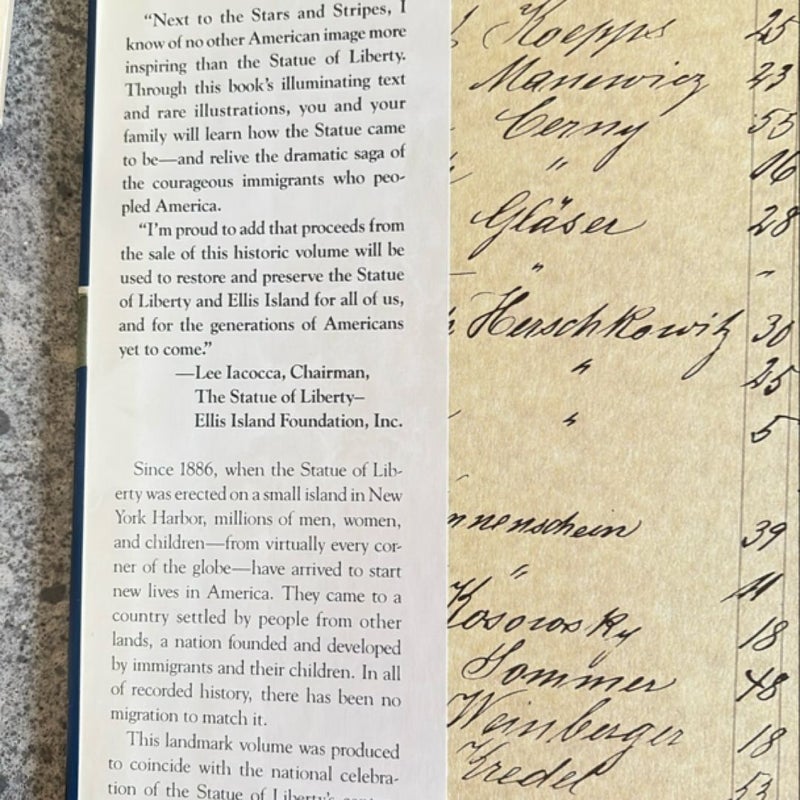 “Next to the Stars and Stripes, I
know of no other American image more
inspiring than the Statue of Liberty.
Through this book’s illuminating text
and rare illustrations, you and your
family will learn how the Statue came
to be—and relive the dramatic saga of
the courageous immigrants who peo-
pled America.
“I’m proud to add that proceeds from
the sale of this historic volume will be
used to restore and preserve the Statue
of Liberty and Ellis Island for all of us,
and for the generations of Americans
yet to come.”
—Lee Iacocca, Chairman,
The Statue of Liberty–
Ellis Island Foundation, Inc.
Since 1886, when the Statue of Lib-
erty was erected on a small island in New
York Harbor, millions of men, women,
and children—from virtually every cor-
ner of the globe—have arrived to start
new lives in America. They came to a
country settled by people from other
lands, a nation founded and developed
by immigrants and their children. In all
of recorded history, there has been no
migration to match it.
This landmark volume was produced
to coincide with the national celebra-
tion of the Statue of Liberty’s
Koepps 25
Manewicz 23
Cerny 55
" 16
Gläser 28
" "
Herschkowitz 30
" 25
" 5
nnenschein 39
" 11
Kosowsky 18
Sommer 48
Weinberger 18
Kredel 53